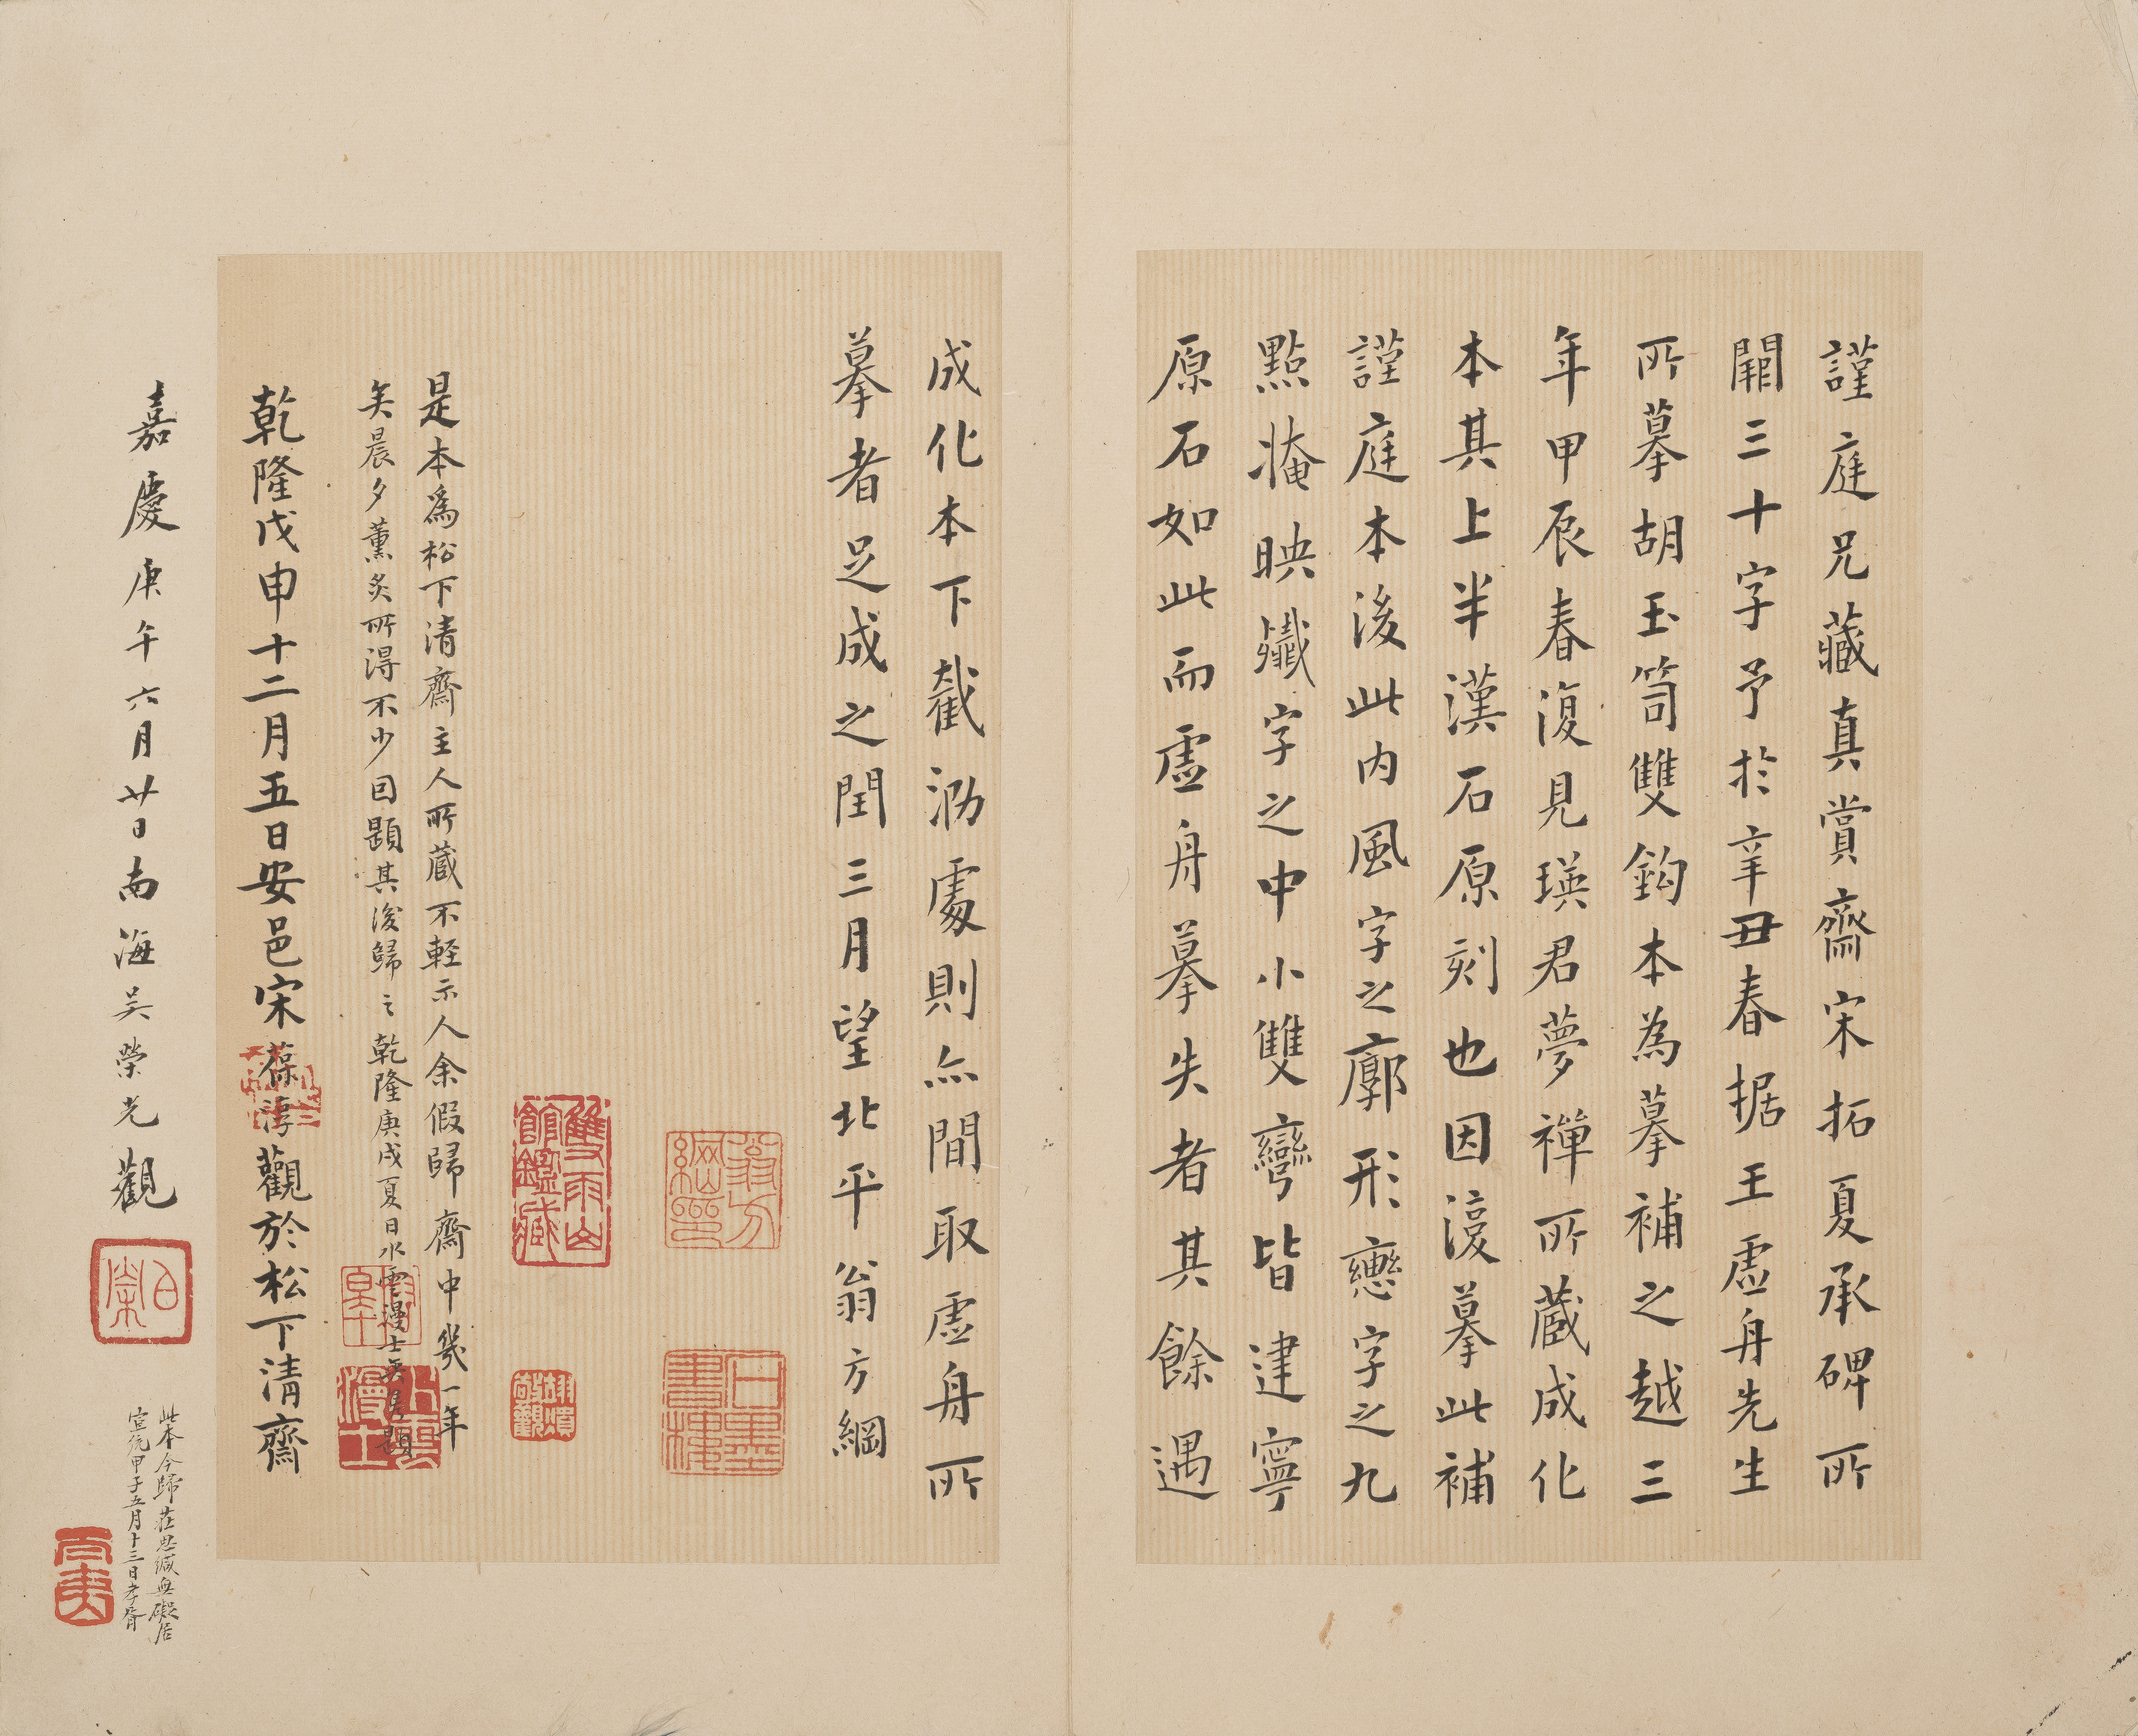 謹庭兄藏真賞齋宋拓夏承碑所
闕三十字予於辛丑春据王虛舟先生
所摹胡玉笥雙鈎本為摹補之越三
年甲辰春復見瑛君夢禪所藏成化
本其上半漢石原刻也因復摹此補
謹庭本後此內風字之廓形戀字之九
點掩映殲字之中小雙彎皆建寧
原石如此而虛舟摹失者其餘遇
成化本下截泐處則亦間取虛舟所
摹者足成之閏三月望北平翁方綱
翁方綱印
雙雨山館鑑藏
是本為松下清齋主人所藏不軽示人余假歸齋中幾一年
矣晨夕薰炙所得不少因題其後歸之乾隆庚戌夏日水雲漫士題
乾隆戊申十二月五日安邑宋葆淳觀於松下清齋
嘉慶庚午六月廿日南海吳榮光觀
此本今歸莊思緘無礙居
宣統甲子五月十三日孝胥